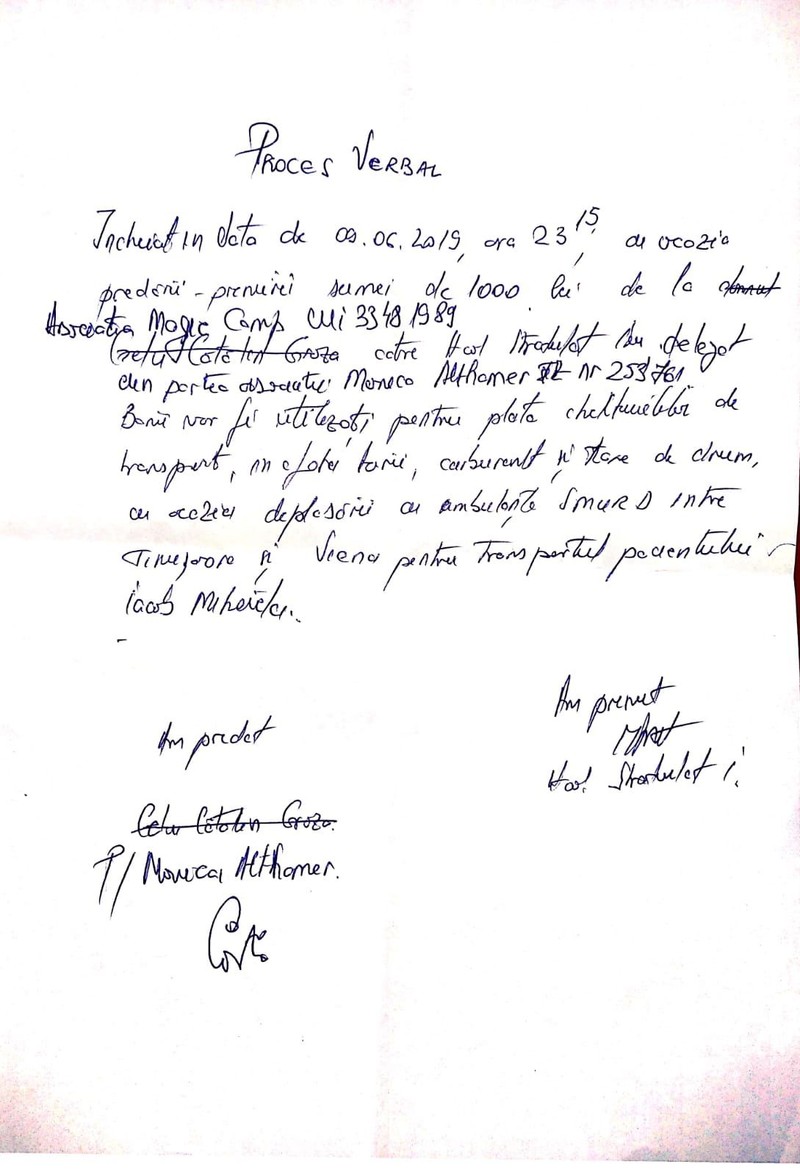 PROCES VERBAL
Incheiat in data de 09.06.2019, ora 23 15, cu ocazia
predarii - primirii sumei de 1000 lei de la
Asociatia Magic Camp CUI 33481989
Cretu Catalin Groza catre Has! Stradulat
din partea asociatiei Monica Althamer nr 253761
Banii vor fi utilizați pentru plata cheltuielilor de
transport, in afara tarii, carburant și taxe de drum,
cu ocazia deplasării cu ambulanțe SMURD intre
Timișoara și Viena pentru transportul pacientului
Iacob Mihăiță.
Am primit
Am predat
Stradulat I.
Catalin Groza
P/ Monica Althamer.